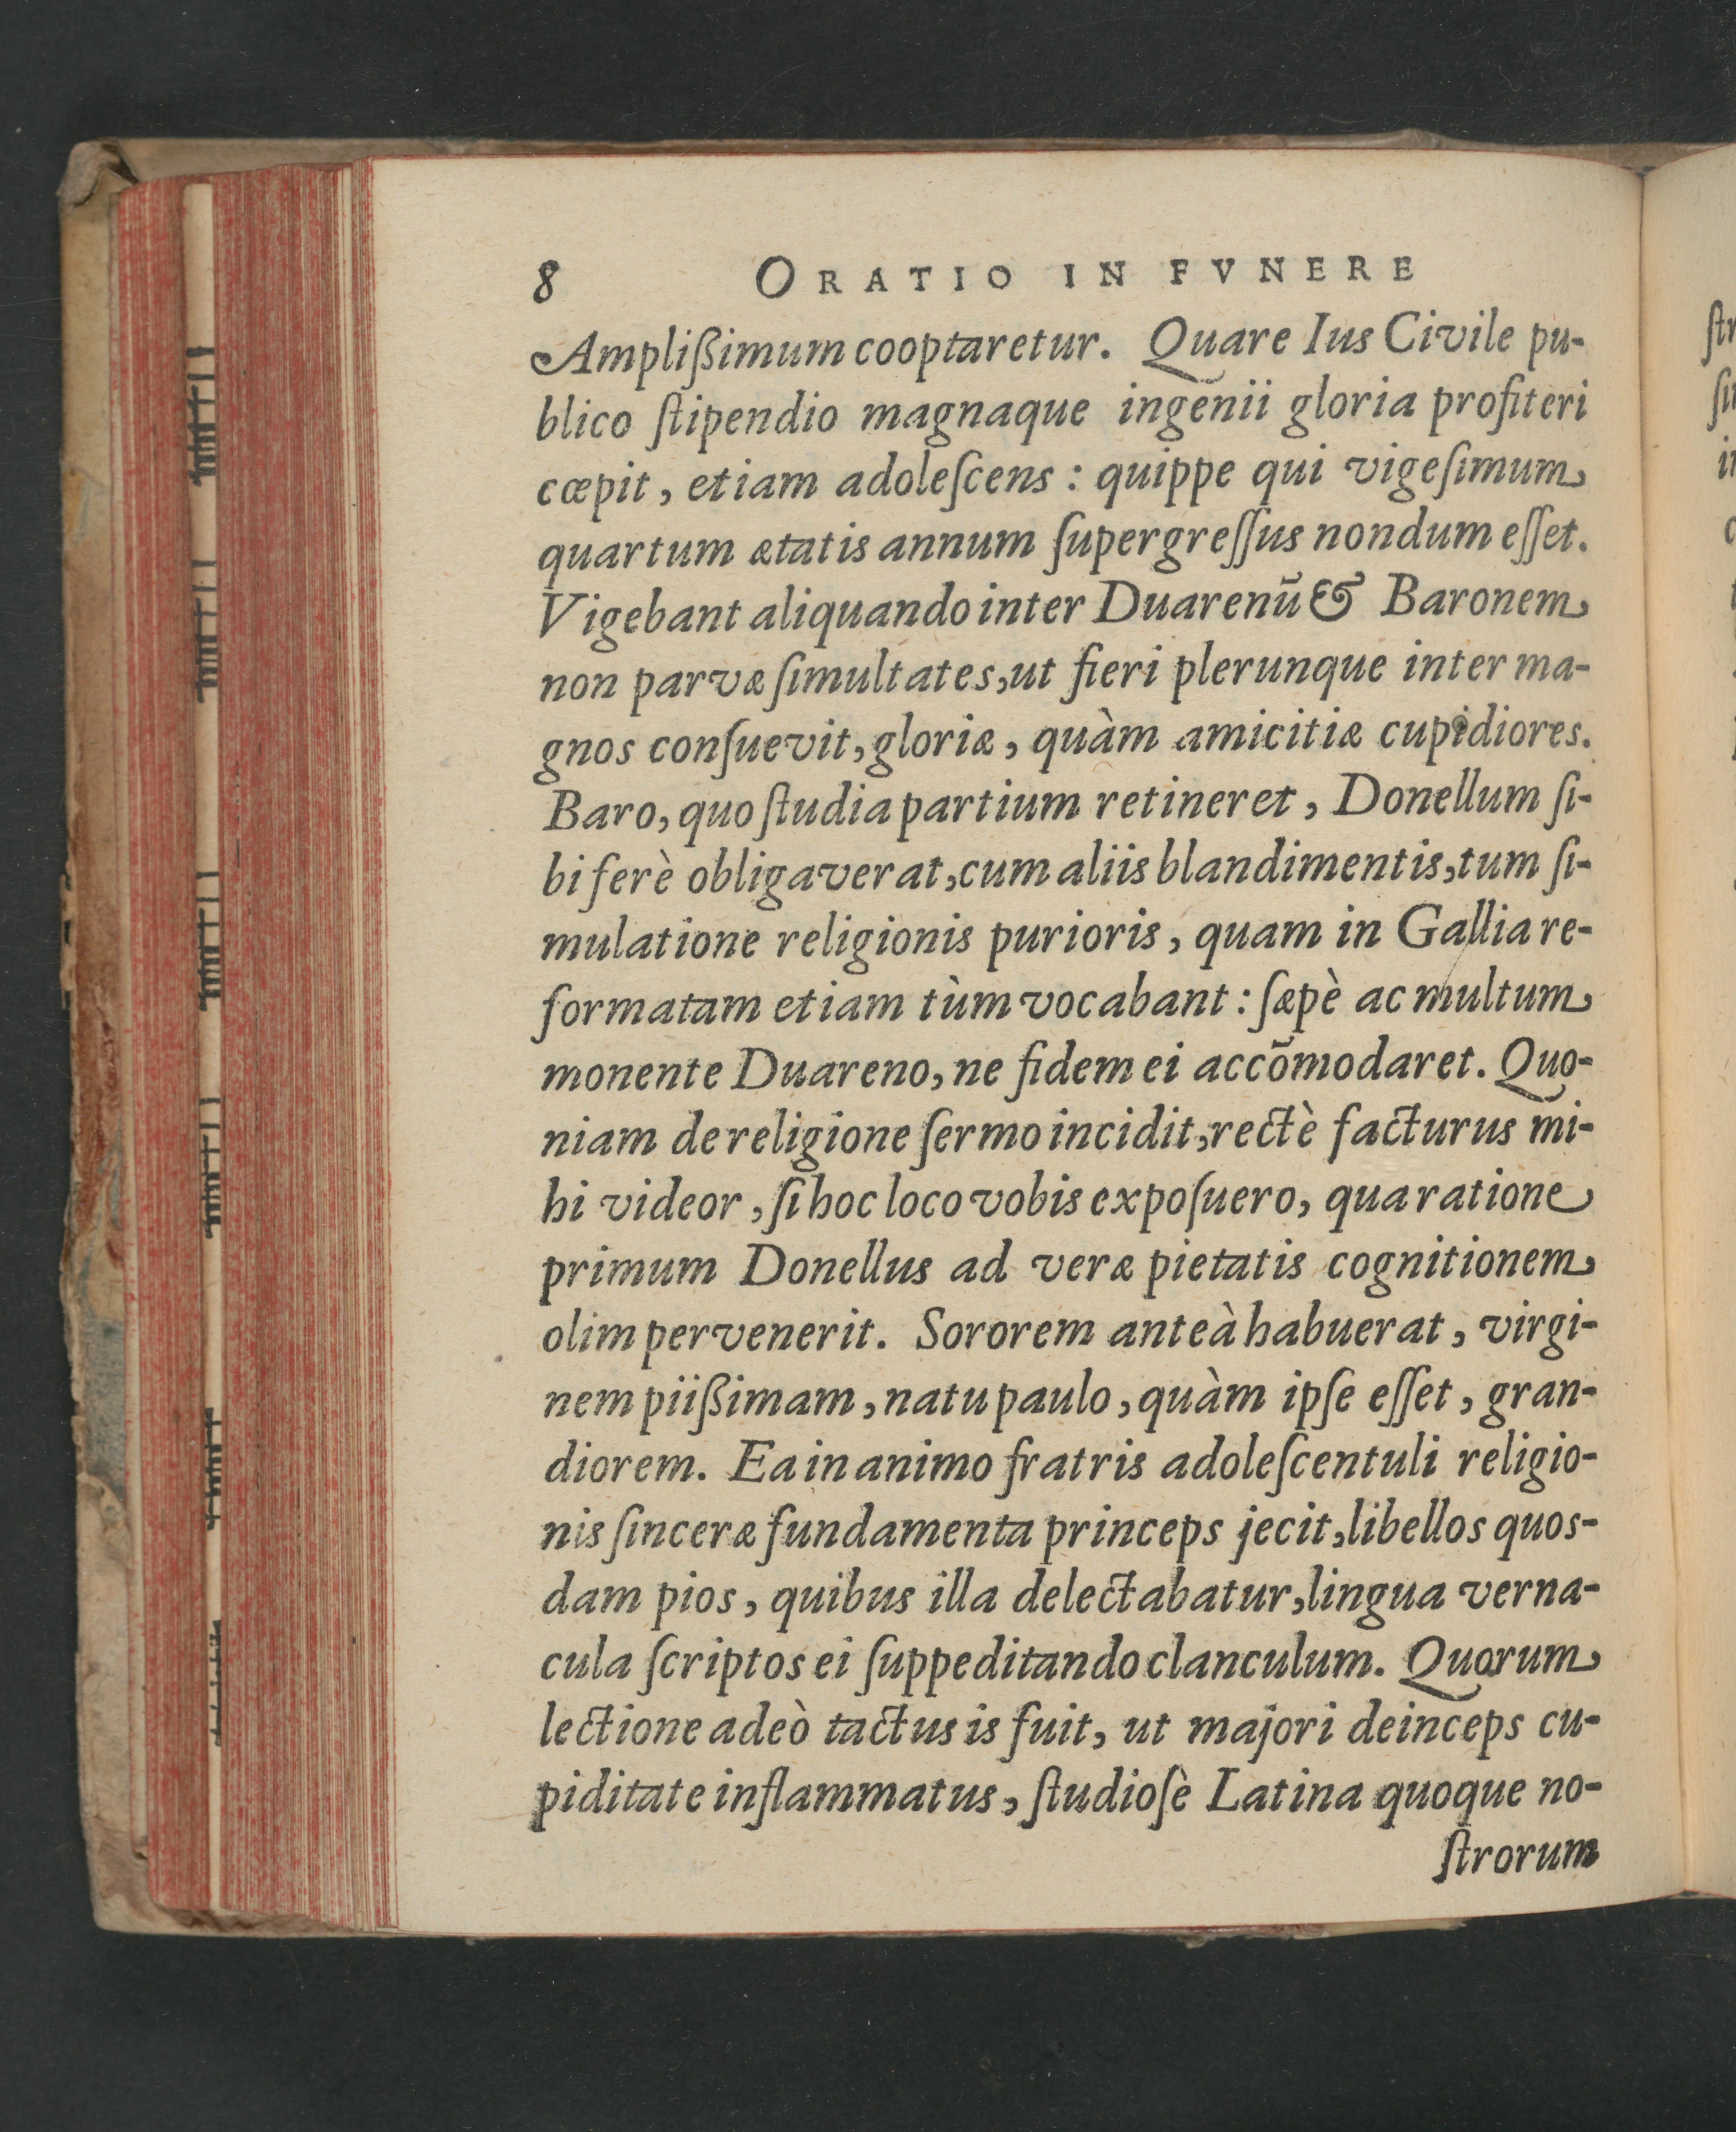 8 ORATIO IN FVNERE
Ampliſſimum cooptaretur. Quare Ius Civile pu-
blico ſtipendio magnaque ingenii gloria profiteri
cœpit, etiam adoleſcens: quippe qui vigeſimum
quartum ætatis annum ſupergreſſus nondum eſſet.
Vigebant aliquando inter Duarenū & Baronem
non parvæ ſimultates, ut fieri plerunque inter ma-
gnos conſuevit, gloriæ, quàm amicitiæ cupidiores.
Baro, quo ſtudia partium retineret, Donellum ſi-
bi ferè obligaverat, cum aliis blandimentis, tum ſi-
mulatione religionis purioris, quam in Gallia re-
formatam etiam tùm vocabant: ſæpè ac multum
monente Duareno, ne fidem ei accōmodaret. Quo-
niam de religione ſermo incidit, rectè facturus mi-
hi videor, ſi hoc loco vobis expoſuero, qua ratione
primum Donellus ad veræ pietatis cognitionem
olim pervenerit. Sororem anteà habuerat, virgi-
nem piißimam, natu paulo, quàm ipſe eſſet, gran-
diorem. Ea in animo fratris adoleſcentuli religio-
nis ſinceræ fundamenta princeps jecit, libellos quos-
dam pios, quibus illa delectabatur, lingua verna-
cula ſcriptos ei ſuppeditando clanculum. Quorum
lectione adeò tactus is fuit, ut majori deinceps cu-
piditate inflammatus, ſtudioſè Latina quoque no-
ſtrorum